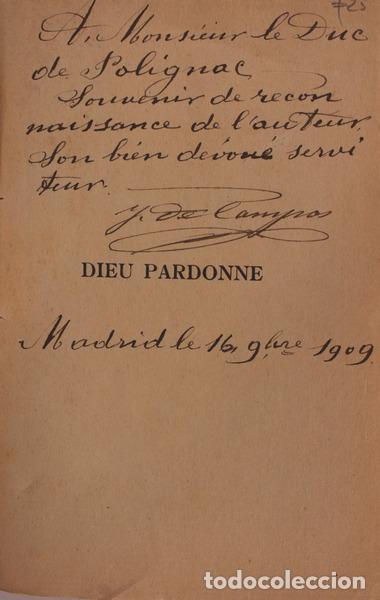 A, Monsieur le Duc
de Polignac
Souvenir de recon
naissance de l'auteur.
Son bien dévoué servi
teur.
J. De Campos
DIEU PARDONNE
Madrid le 16, 9bre 1909
todocoleccion